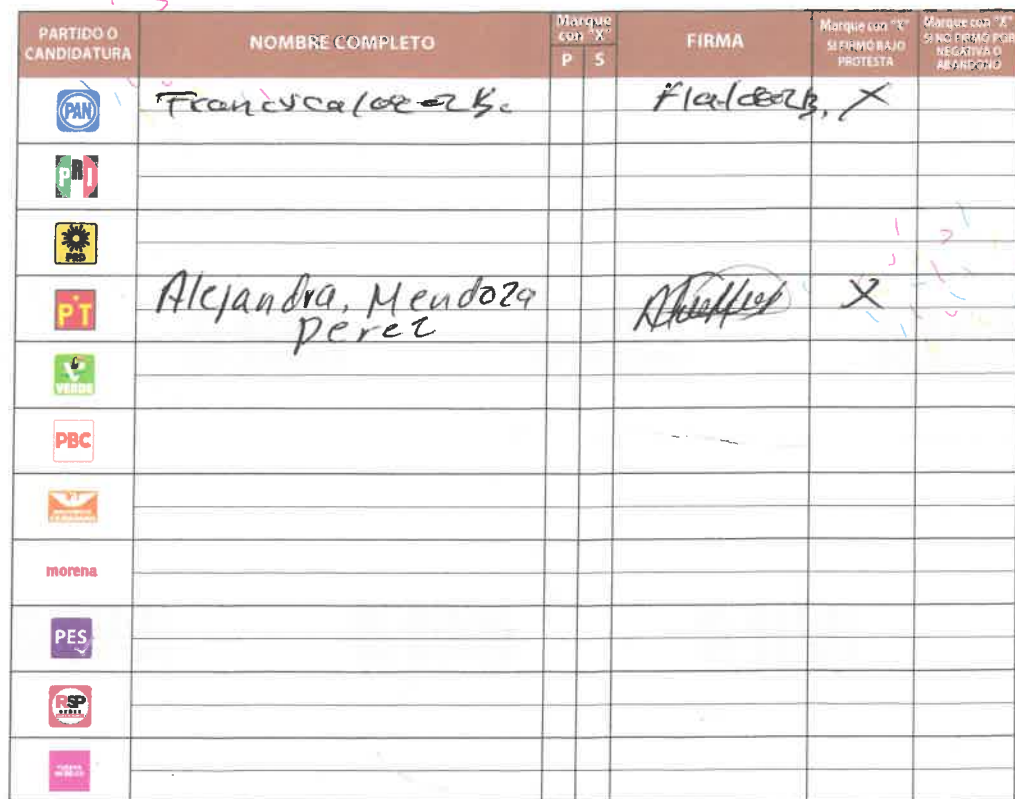 PARTIDO O CANDIDATURA
NOMBRE COMPLETO
Marque con "X"
P S
FIRMA
Marque con "X" SI FIRMÓ BAJO PROTESTA
Marque con "X" SI NO FIRMÓ POR NEGATIVA O ABANDONO
PAN
X
PRI
PRD
PT
Alejandra, Mendoza
Perez
X
VERDE
PBC
morena
PES
RSP